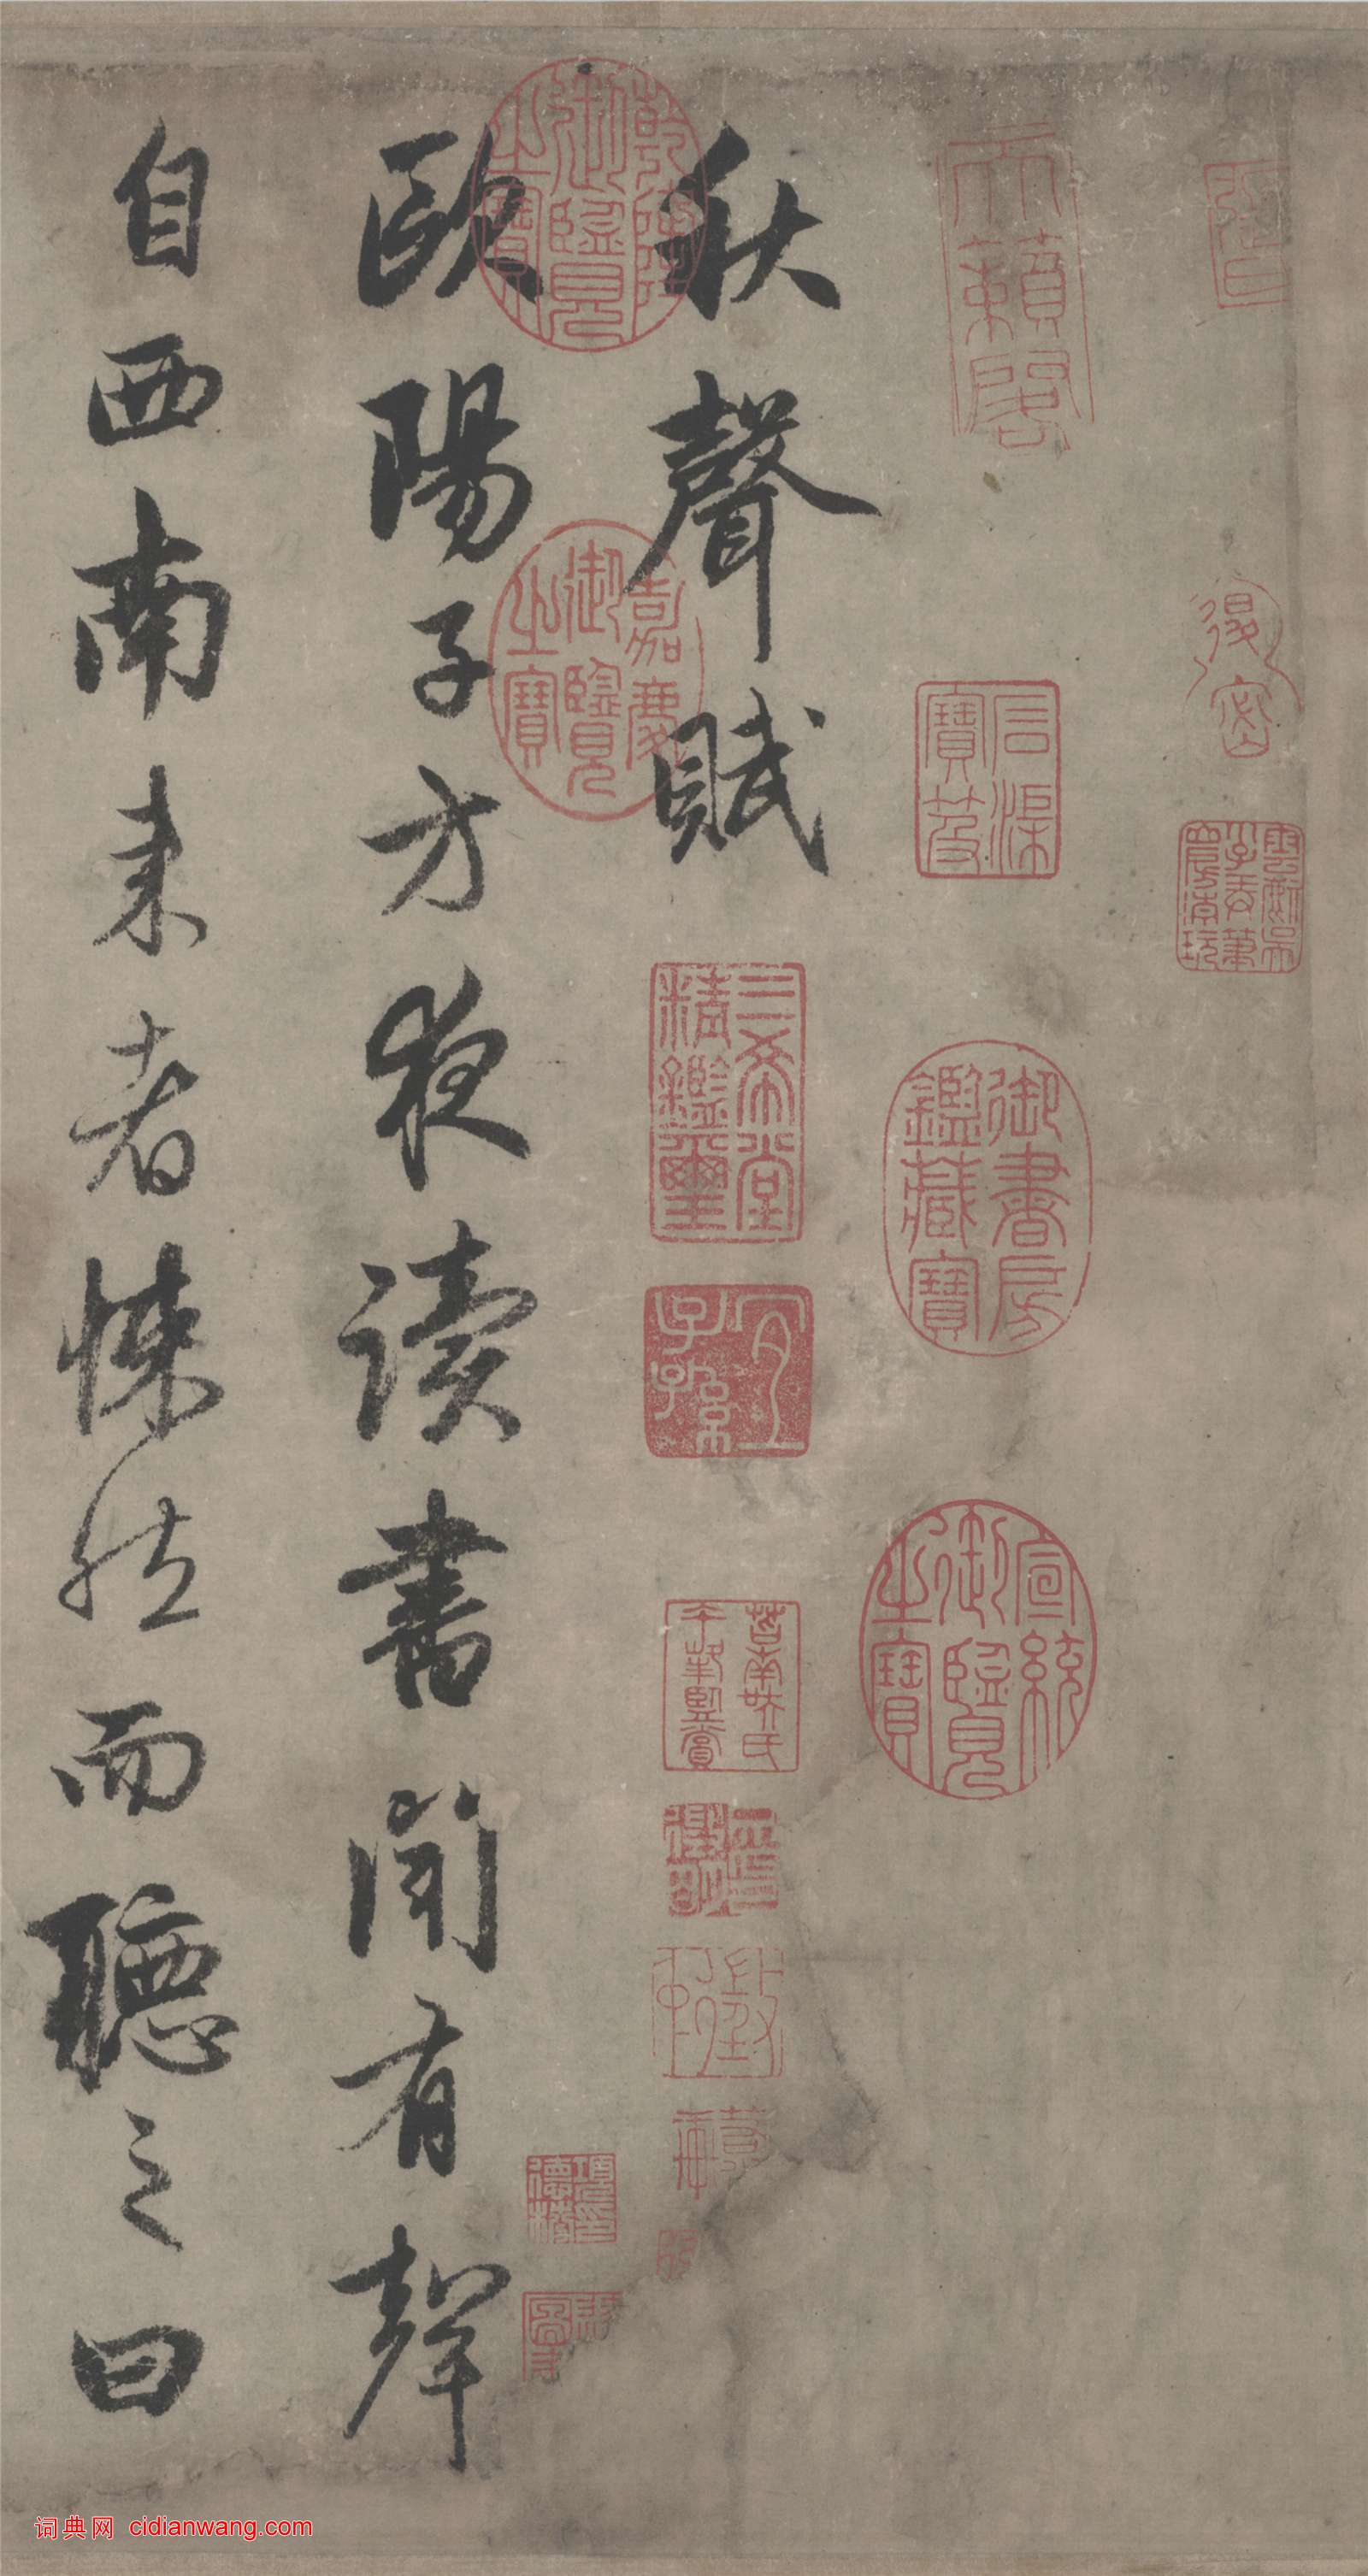 秋聲賦
歐陽子方夜讀書聞有聲
自西南来者悚然而聽之曰
乾隆御覽之寶
嘉慶御覽之寶
天籟閣
石渠寶笈
三希堂精鑑璽
宜子孫
御書房鑑藏寶
宣統御覽之寶
词典网 cidianwang.com